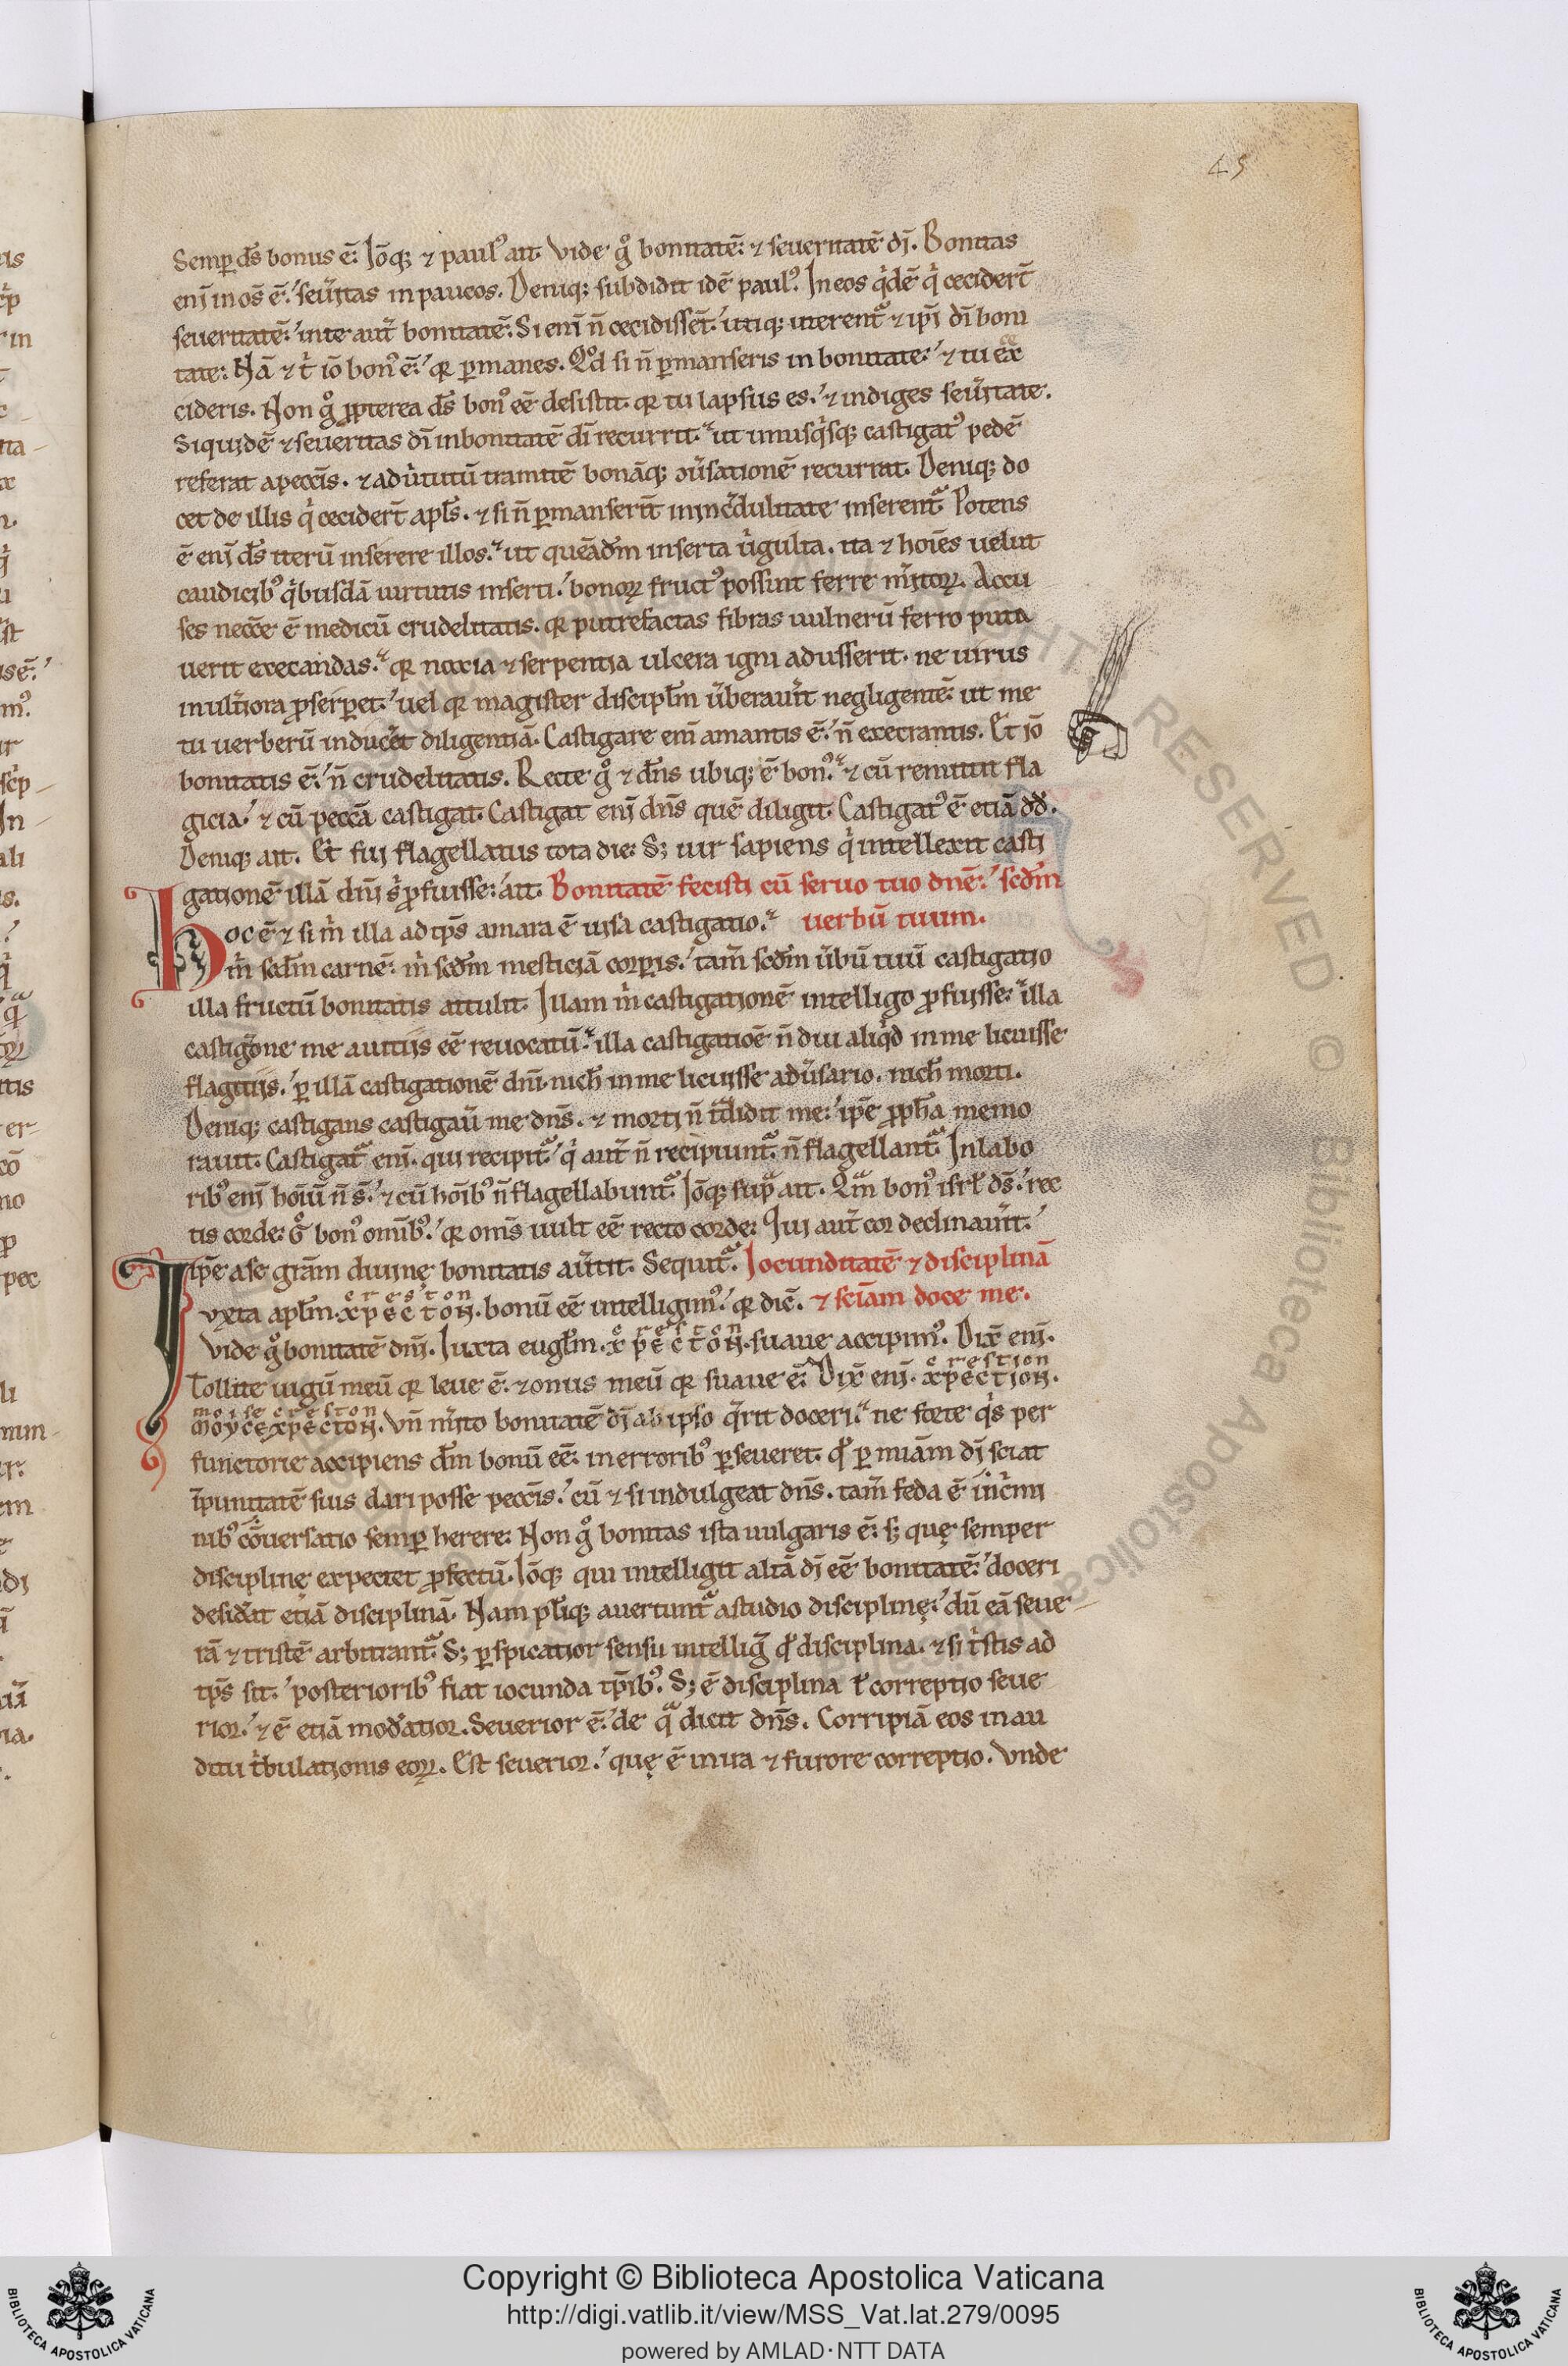 45
Semp̲ ds̄ bonus ē. Iōq; ⁊ paul᾽ ait. Vide gͦ bonitatē: ⁊ seueritatē dī. Bonitas
enī in os̄ ē: seu̓itas in paucos. Deniq; subdidit idē paul᾽. In eos qͥdē qͥ cecider̄t
seueritatē: in te aut̄ bonitatē. Si enī n̄ cecidissēt: utiq; uterent᷑ ⁊ ip̄i dī boni
tate. Nā ⁊ tͥ iō bon᾽ ē: qꝛ p̲manes. Qͦd si n̄ p̲manseris in bonitate: ⁊ tu ex
cideris. Non gͦ ꝓpterea ds̄ bon᾽ eē desistit. qꝛ tu lapsus es: ⁊ indiges seu̓itate.
Siquidē ⁊ seueritas dī in bonitatē dī recurrit: ut unusqͥsq; castigat᾽ pedē
referat a pecc̄is. ⁊ ad u̓tutū tramitē bonāq; ꝯu̓sationē recurrat. Deniq; do
cet de illis qͥ cecider̄t apl̄s. ⁊ si n̄ p̲manser̄t in inc̓dulitate inserent᷑. Potens
ē enī ds̄ iterū inserere illos: ut quēadm̄ inserta u̓gulta. ita ⁊ hoīes uelut
caudicib᾽ qͥbusdā uirtutis inserti: bonoꝝ fruct᾽ possint ferre m̓itoꝝ. Accu
ses necc̄e ē medicū crudelitatis. qꝛ putrefactas fibras uulnerū ferro puta
uerit execandas: qꝛ noxia ⁊ serpentia ulcera igni adusserit. ne uirus
in ult̓iora ꝓserp̲et: uel qꝛ magister discipl̄m u̓berau̓it negligentē: ut me
tu uerberū induc̓et diligentiā. Castigare enī amantis ē: n̄ execrantis. Et iō
bonitatis ē: n̄ crudelitatis. Recte gͦ ⁊ dn̄s ubiq; ē bon᾽: ⁊ cū remittit fla
gicia: ⁊ cū pecc̄a castigat. Castigat enī dn̄s quē diligit. Castigat᾽ ē etiā dd̄.
Deniq; ait. Et fui flagellatus tota die. S; uir sapiens qͥ intellexit casti
gationē illā dn̄i sͥ ꝓfuisse: ait. Bonitatē fecisti cū seruo tuo dn̄e: scd̄m
Hoc ē ⁊ si m̓ illa ad tp̄s amara ē uisa castigatio: uerbū tuum.
m̓ scd̄m carnē: m̓ scd̄m mesticiā corp̲is: tam̄ scd̄m u̓bū tuū castigatio
illa fructū bonitatis attulit. Illam m̓ castigationē intelligo ꝓfuisse: illa
castig̓one me a uitiis eē reuocatū: illa castigatiōe n̄ diu aliqͥd in me licuisse
flagitiis: p̲ illā castigationē dn̄i. nich̄ in me licuisse adu̓sario. nich̄ morti.
Deniq; castigans castigau̓ me dn̄s. ⁊ morti n̄ t̓didit me: ip̄e ꝓph̄a memo
rauit. Castigat᷑ enī. qui recipit᷑: qͥ aut̄ n̄ recipiunt᷑. n̄ flagellant᷑. In labo
rib᾽ enī hoīū n̄ s̄: ⁊ cū hoīb᾽ n̄ flagellabunt᷑. Iōq; supᷓ ait. Qm̄ bon᾽ isrl̄ ds̄: rec
tis corde. Gͦ bon᾽ omīb᾽: qꝛ oms̄ uult eē recto corde. Qui aut̄ cor declinau̓it:
ip̄e a se grām diuinę bonitatis au̓tit. Sequit᷑. Iocunditatē ⁊ disciplinā
creston
Iuxta apl̄m. xpecton. bonū eē intelligim᾽: qꝛ dic̄. ⁊ sciam doce me.
creston
Vide gͦ bonitatē dn̄i. Iuxta eugl̄m. xpecton. suaue accipim᾽. Dix̄ enī.
crestion
Tollite iugū meū qꝛ leue ē. ⁊ onus meū qꝛ suaue ē. Dix̄ enī. xpection.
moise creston
moycexpecton. Vn̄ m̓ito bonitatē dī ab ipso q̓rit doceri: ne forte qͥs per
functorie accipiens dm̄ bonū eē: in errorib᾽ p̲seueret. qͩ p̲ miām dī sciat
īpunitatē suis dari posse pecc̄is: cū ⁊ si indulgeat dn̄s. tam̄ feda ē in c̓mi
nib᾽ cōuersatio semp̲ herere. Non gͦ bonitas ista uulgaris ē: s; quę semper
disciplinę expectet ꝓfectū. Iōq; qui intelligit altā dī eē bonitatē: doceri
desid̓at etiā disciplinā. Nam pl̓iq; auertunt᷑ a studio disciplinę: dū eā seue
rā ⁊ tristē arbitrant᷑. S; p̲spicatior sensu intellig̓ qͩ disciplina. ⁊ si tͥstis ad
tp̄s sit: posteriorib᾽ fiat iocunda tp̄ib᾽. S; ē disciplina ł correptio seue
rior: ⁊ ē etiā mod̓atior. Seuerior ē: de qᷓ dicit dn̄s. Corripiā eos in au
ditu tͥbulationis eoꝝ. Est seuerior: quę ē in ira ⁊ furore correptio. Vnde
Copyright © Biblioteca Apostolica Vaticana
http://digi.vatlib.it/view/MSS_Vat.lat.279/0095
powered by AMLAD·NTT DATA
BIBLIOTECA APOSTOLICA VATICANA
BIBLIOTECA APOSTOLICA VATICANA